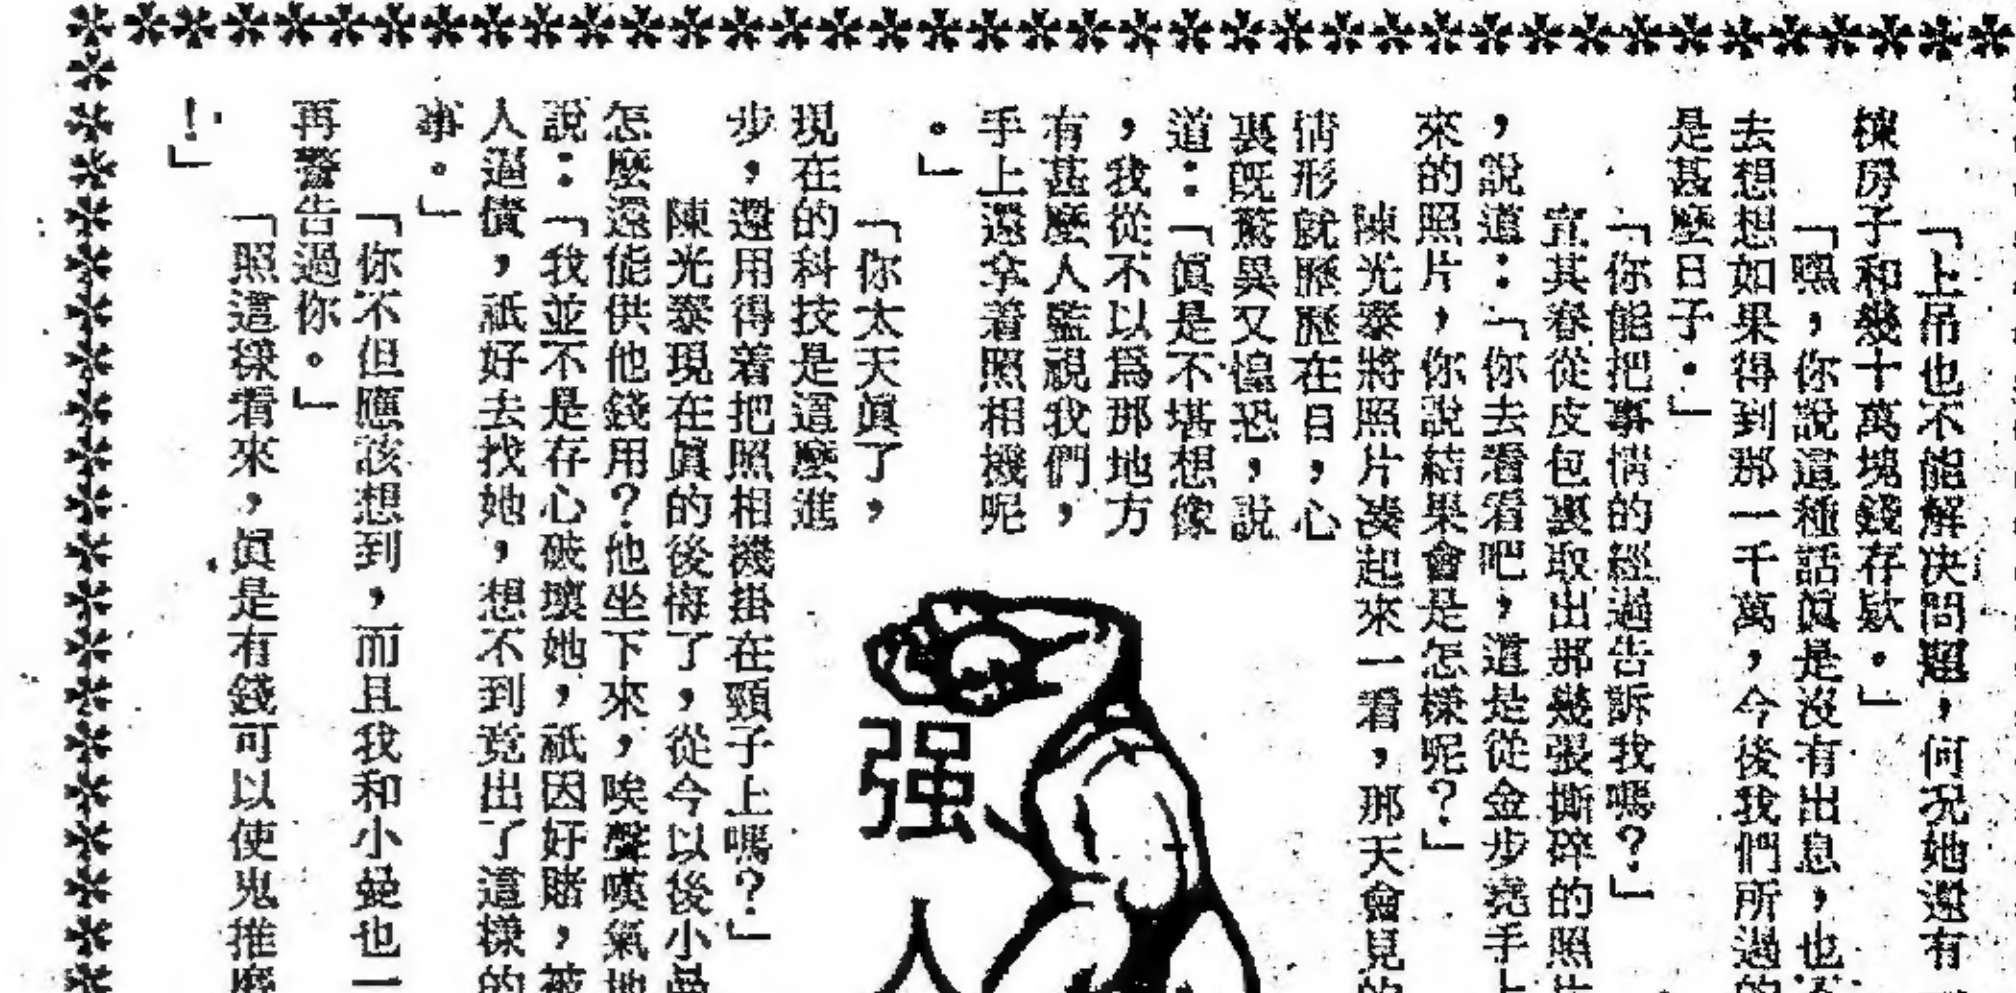 「上吊也不能解决問題，何况她還有
棟房子和幾十萬塊錢存欵。」
「嘿，你說這種話眞是沒有出息，也不
去想想如果得到那一千萬，今後我們所過的
是甚麼日子。」
「你能把事情的經過告訴我嗎？」
宣其春從皮包裏取出那幾張撕碎的照片
，說道：「你去看看吧，這是從金步堯手上
來的照片，你說結果會是怎樣呢？」
陳光泰將照片湊起來一看，那天會見的
情形就歷歷在目，心
裏旣驚異又惶恐，說
道：「眞是不堪想像
，我從不以爲那地方
有甚麼人監視我們，
手上還拿着照相機呢
。」
「你太天眞了，
現在的科技是這麼進
步，還用得着把照相機掛在頸子上嗎？」
陳光泰現在眞的後悔了，從今以後小曼
怎麼還能供他錢用？他坐下來，唉聲嘆氣地
說：「我並不是存心破壞她，祇因好賭，被
人逼債，祇好去找她，想不到竟出了這樣的
事。」
「你不但應該想到，而且我和小曼也一
再警告過你。」
「照這樣看來，眞是有錢可以使鬼推磨
！」
强
人